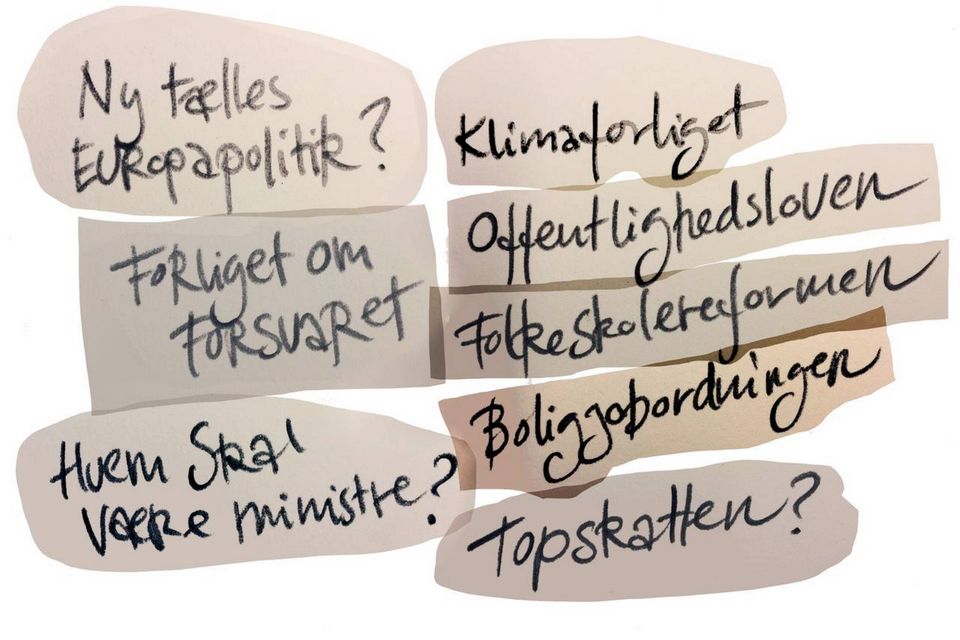 Ny fælles
Europapolitik?
Forliget om
Forsvaret
Hvem Skal
være ministre?
Klimaforliget
Offentlighedsloven
Folkeskolereformen
Boligjobordningen
Topskatten?